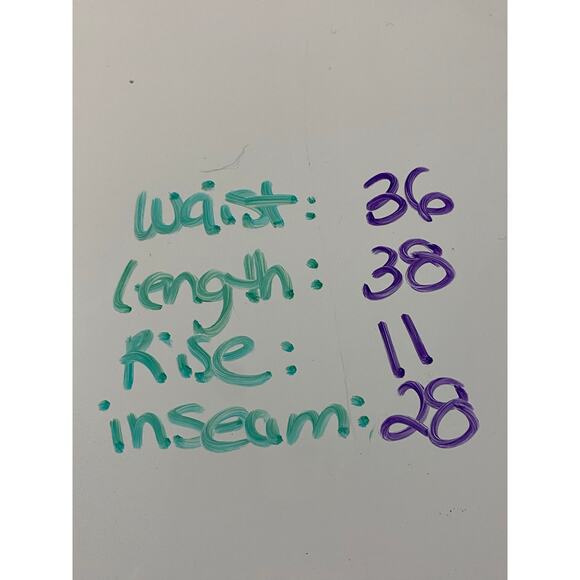 Waist: 36
Length: 38
Rise: 11
inseam: 28